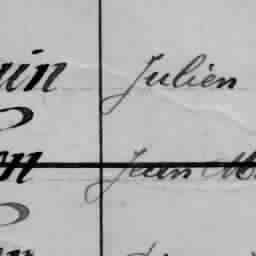 uin Julien
on Jean M